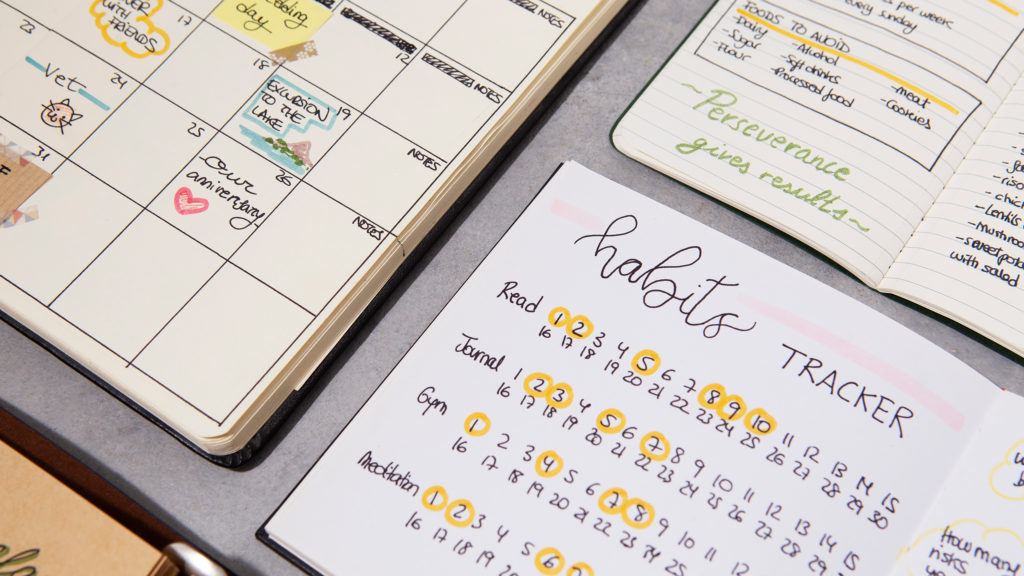 WITH
FRIENDS
17
day
NOTES
23
Vet
24
18
EXCURSION
TO THE
LAKE
19
12
NOTES
31
25
Our
anniversary
26
NOTES
NOTES
per week
every sunday
FOODS TO AVOID
-Daily -Alcohol -meat
-Sugar -Soft drinks -Cookies
-Flour -Processed food
~Perseverance
gives results~
-mushroo
with salad
habits
TRACKER
Read 1 2 3 4 5 6 7 8 9 10 11 12 13 14 15
16 17 18 19 20 21 22 23 24 25 26 27 28 29 30
Journal 1 2 3 4 5 6 7 8 9 10 11 12 13 14 15
16 17 18 19 20 21 22 23 24 25 26 27 28 29 30
Gym 1 2 3 4 5 6 7 8 9 10 11 12
16 17 18 19 20 21 22 23 24 25
Meditation 1 2 3 4 5 6
16 17 18 19 20
How many
risks